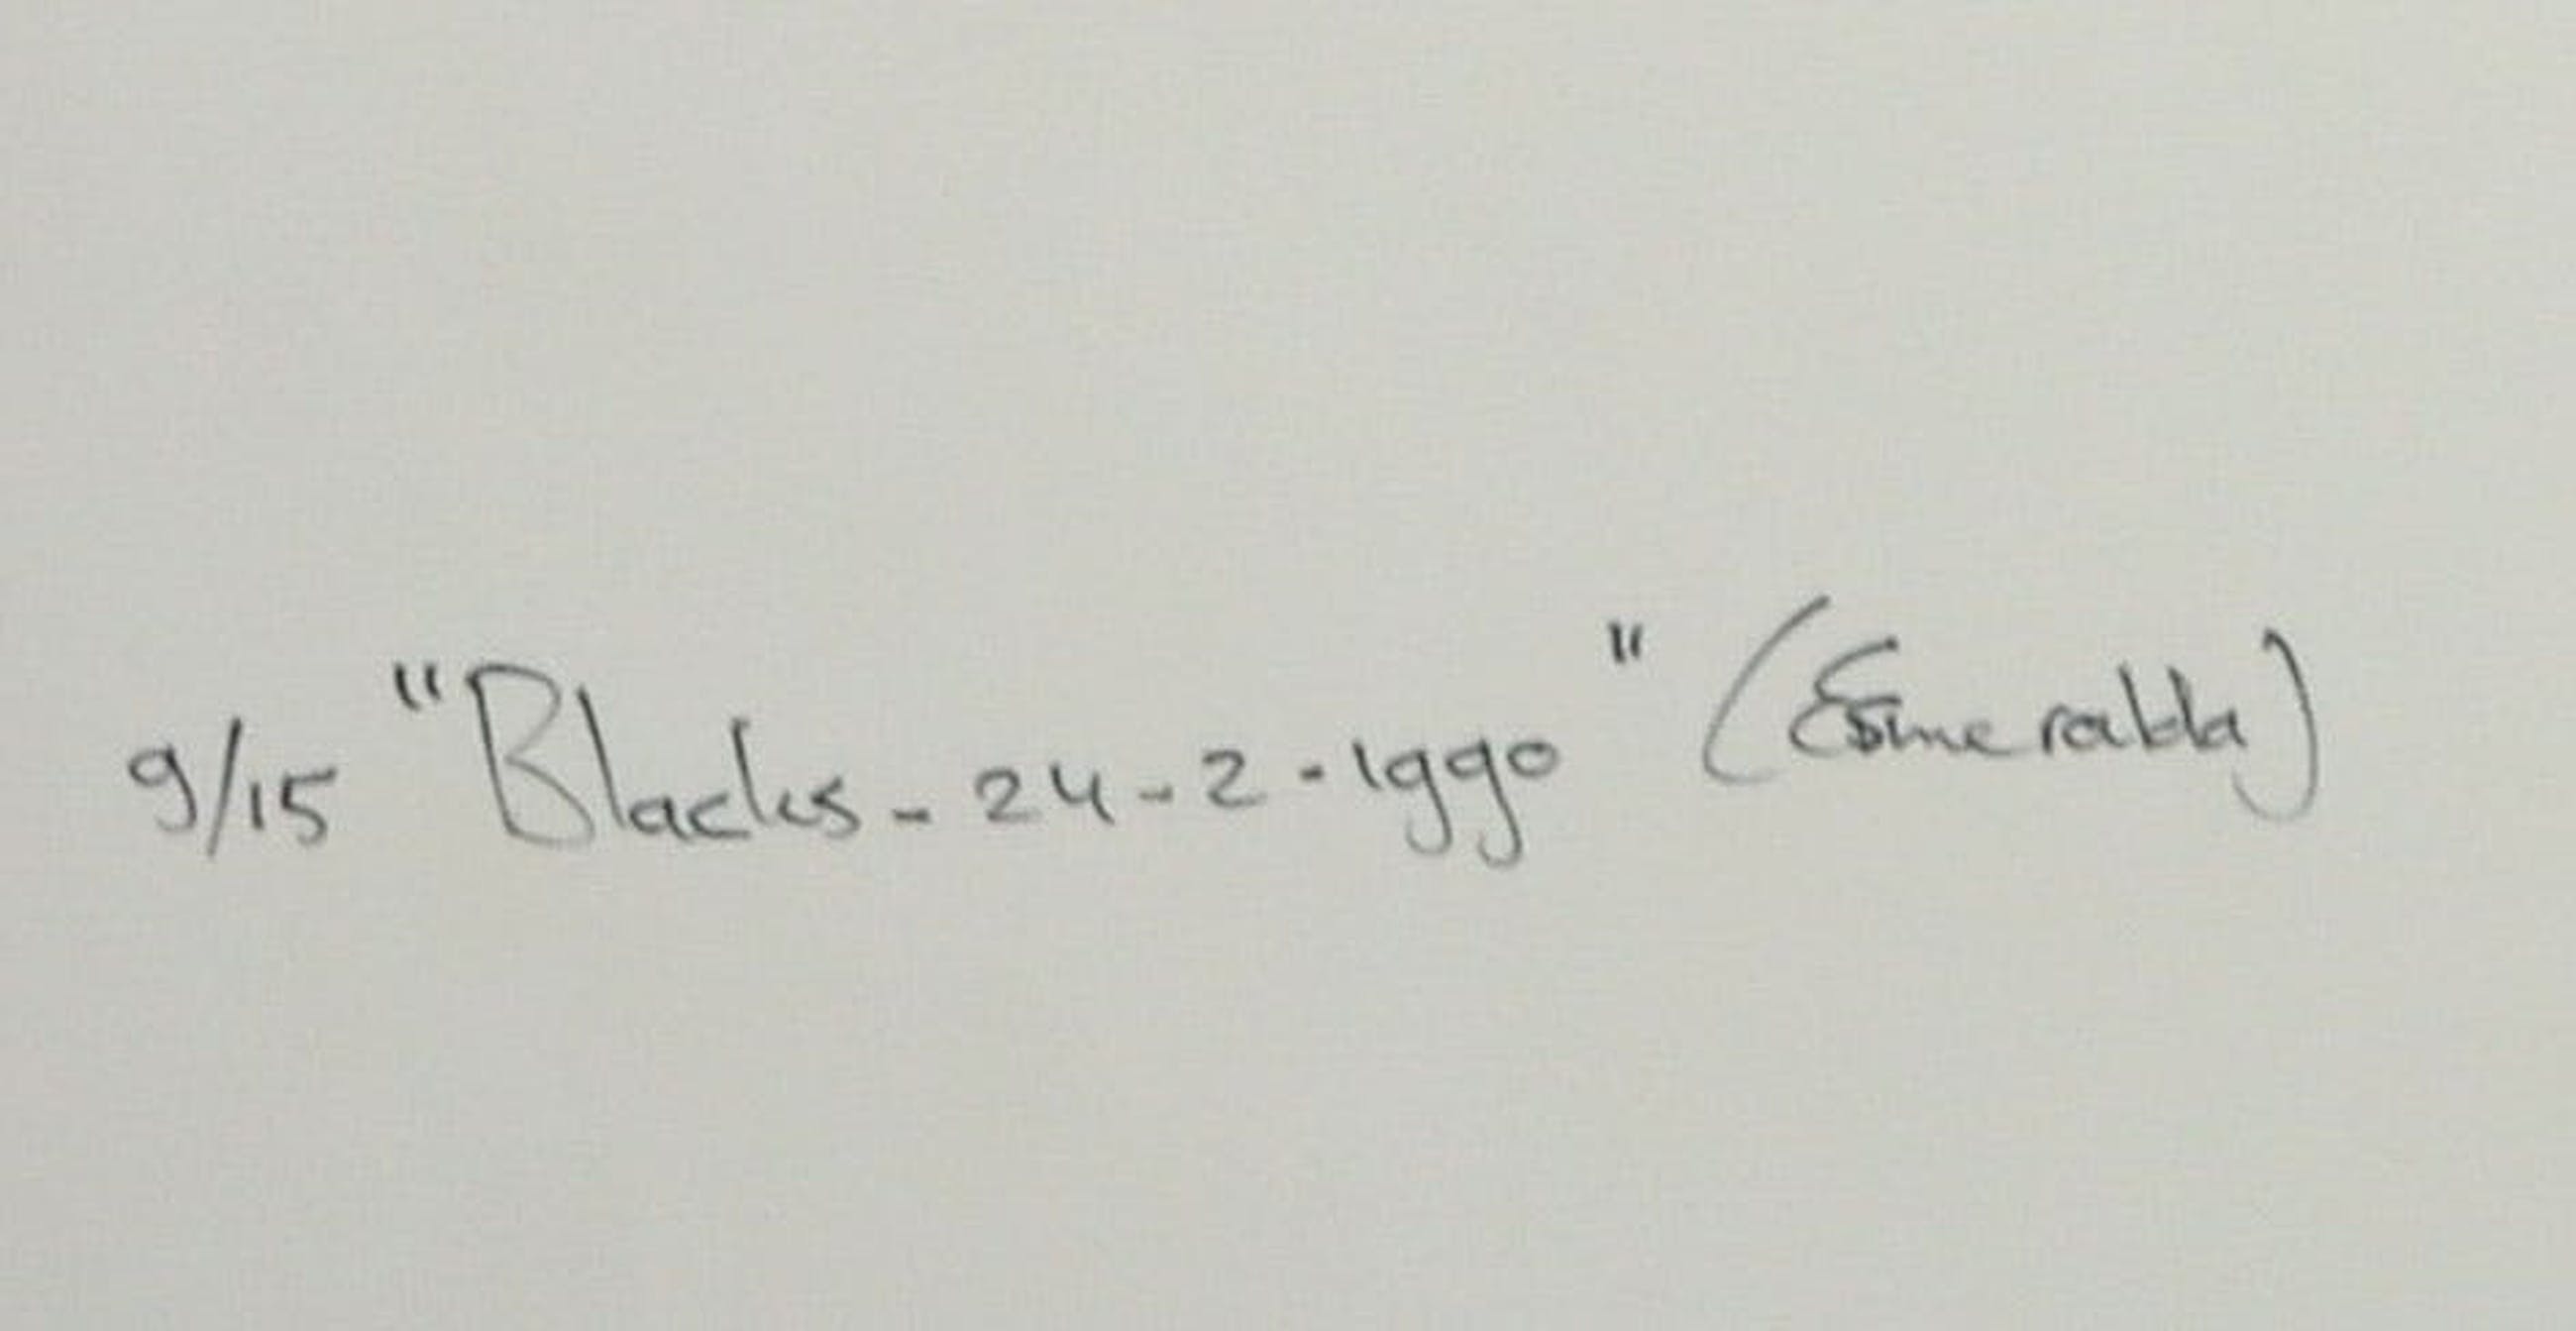 9/15 "Blacks - 24 - 2 - 1990" (Esmeralda)